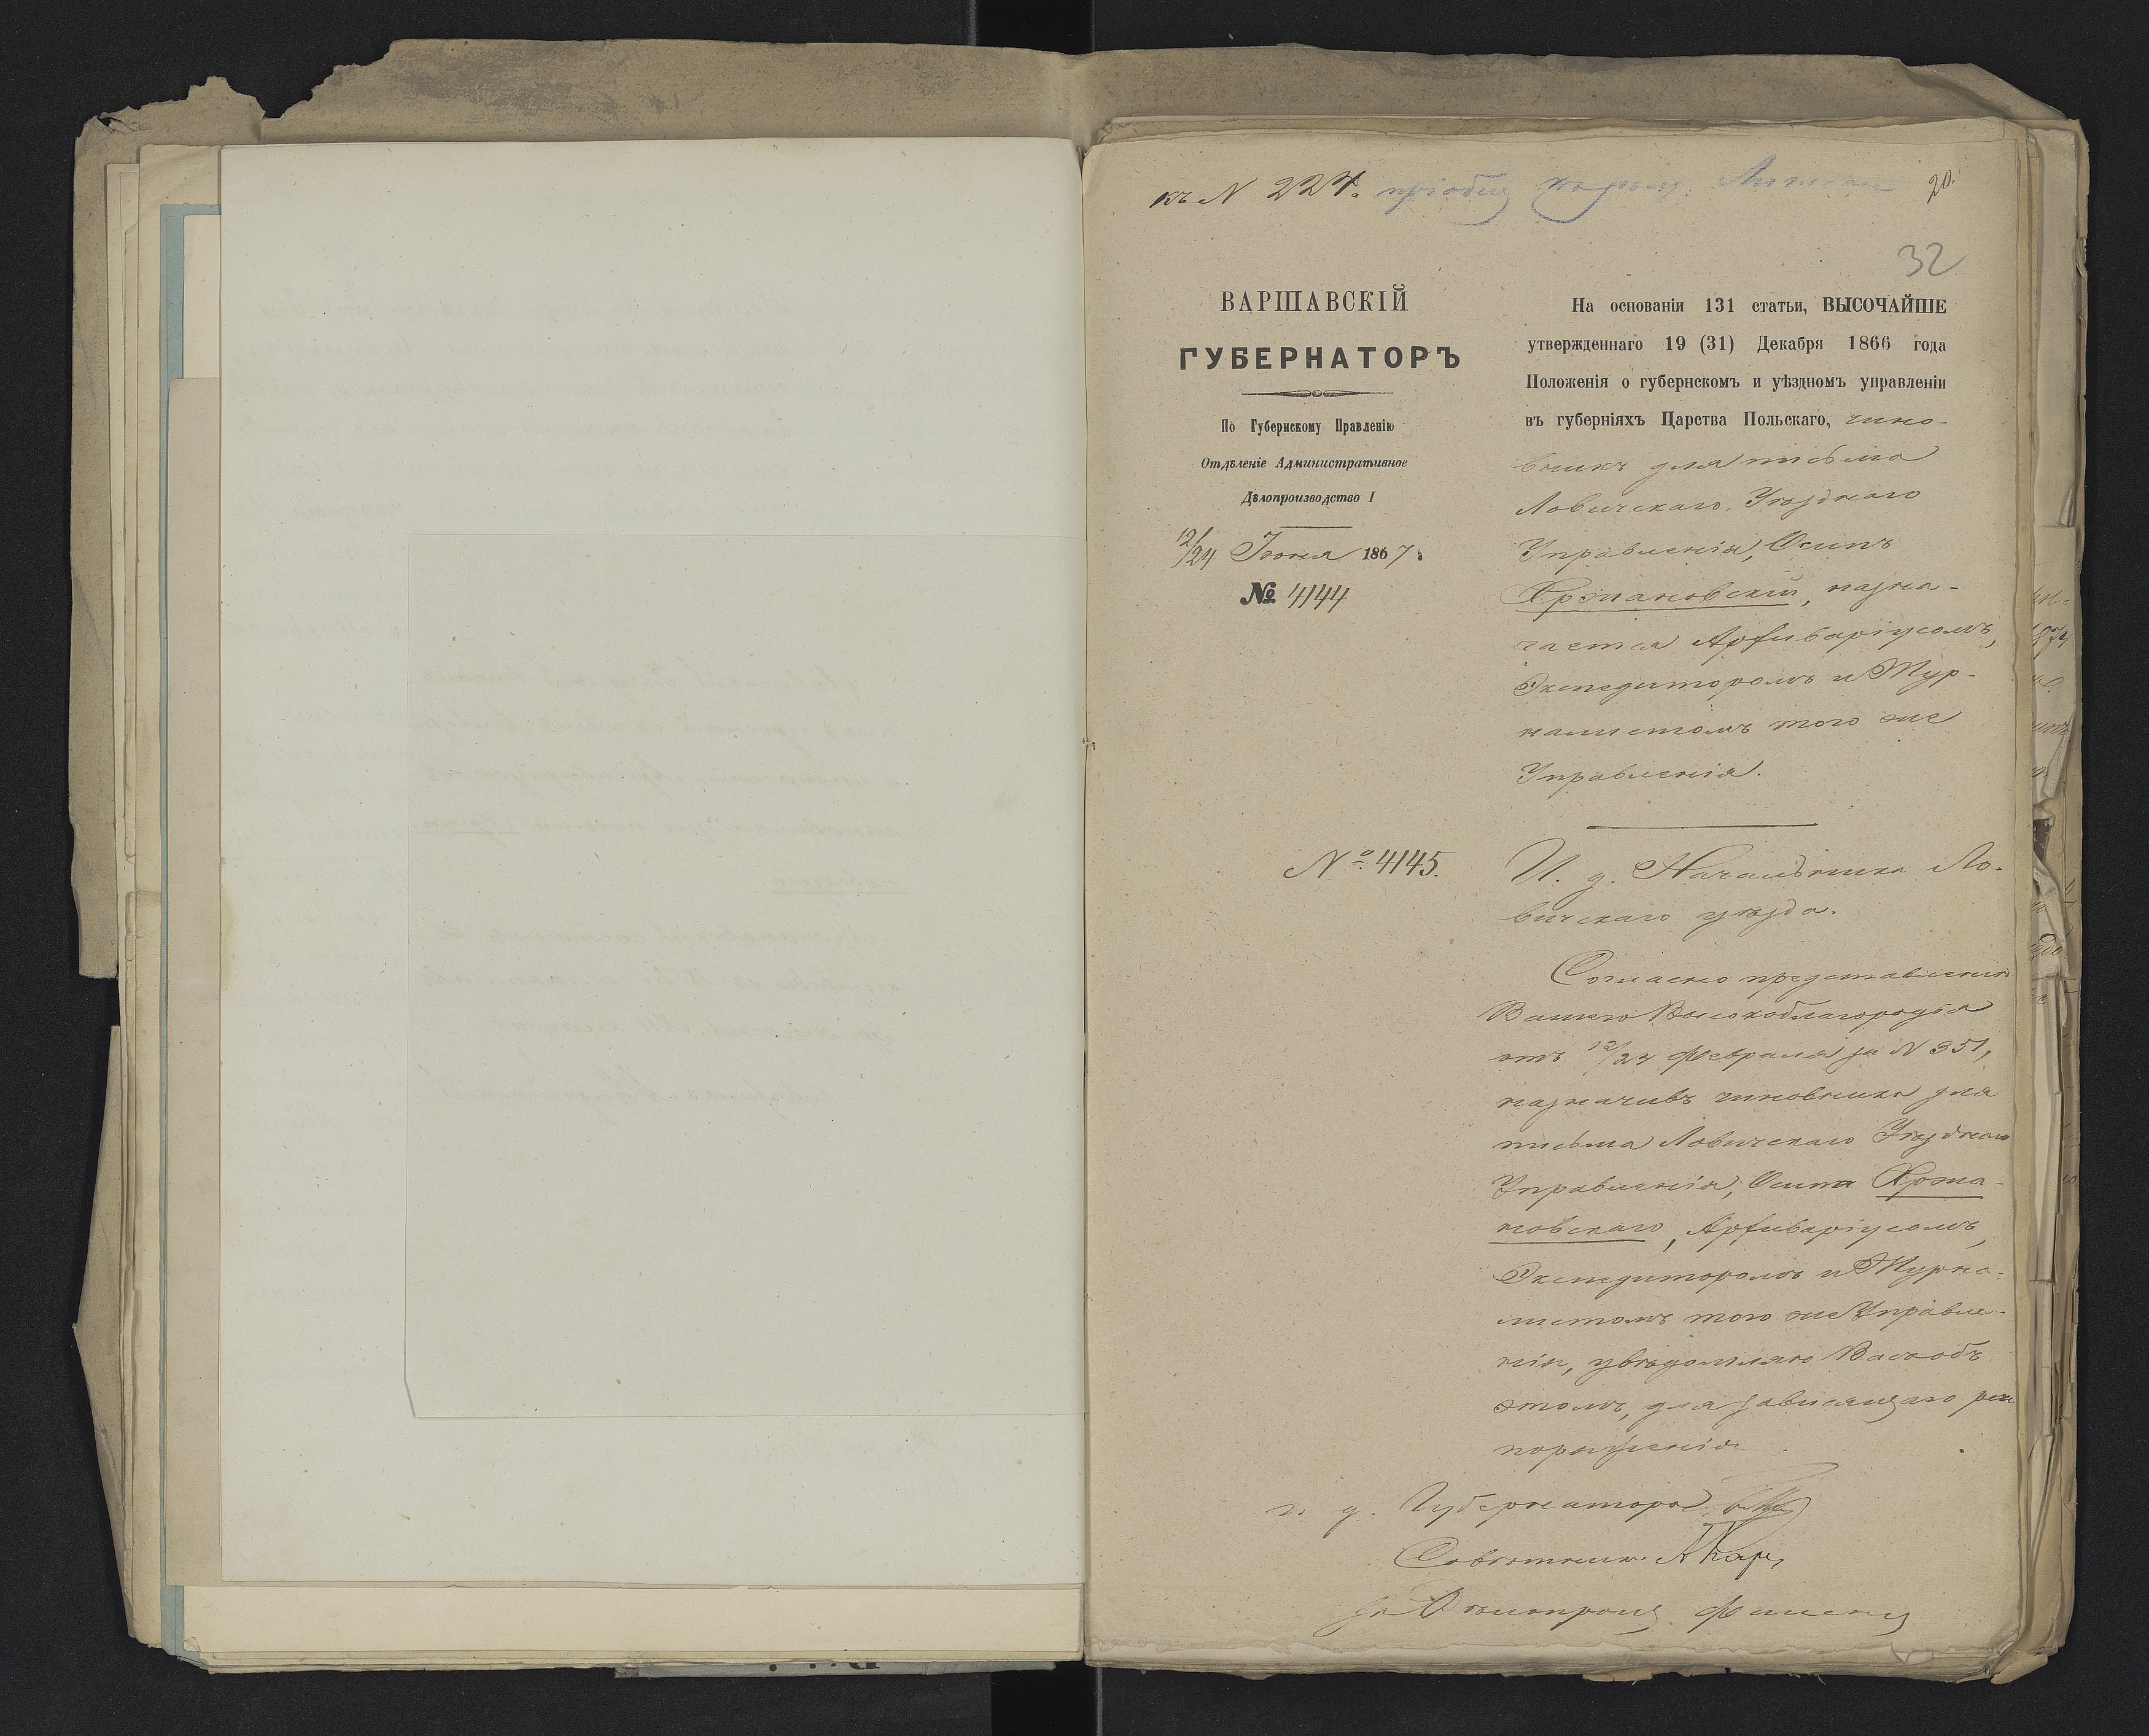 къ N 224.
20.
32
ВАРШАВСКІЙ
ГУБЕРНАТОРЪ
По Губернскому Правленію
Отдѣленіе Административное
Дѣлопроизводство I
12/24 Іюня 1867.
№ 4144
На основаніи 131 статьи, ВЫСОЧАЙШЕ
утвержденнаго 19 (31) Декабря 1866 года
Положенія о губернскомъ и уѣздномъ управленіи
въ губерніяхъ Царства Польскаго, чино-
вникъ для письма
Ловичскаго Уѣзднаго
Управленія, Осипъ
Хржановскій, назна-
чается Архиваріусомъ,
Экспедиторомъ и Жур-
налистомъ того же
Управленія.
№ 4145.
И. д. Начальника Ло-
вичскаго уѣзда.
Согласно представленію
Вашего Высокоблагородія
отъ 12/24 Февраля за N 351,
назначивъ чиновника для
письма Ловичскаго Уѣзднаго
Управленія, Осипа Хржа-
новскаго, Архиваріусомъ,
Экспедиторомъ и Журна-
листомъ того же Управле-
нія, увѣдомляю Васъ объ
этомъ, для зависящаго рас
поряженія
и. д. Губернатора
Совѣтникъ
за Дѣлопроиз.